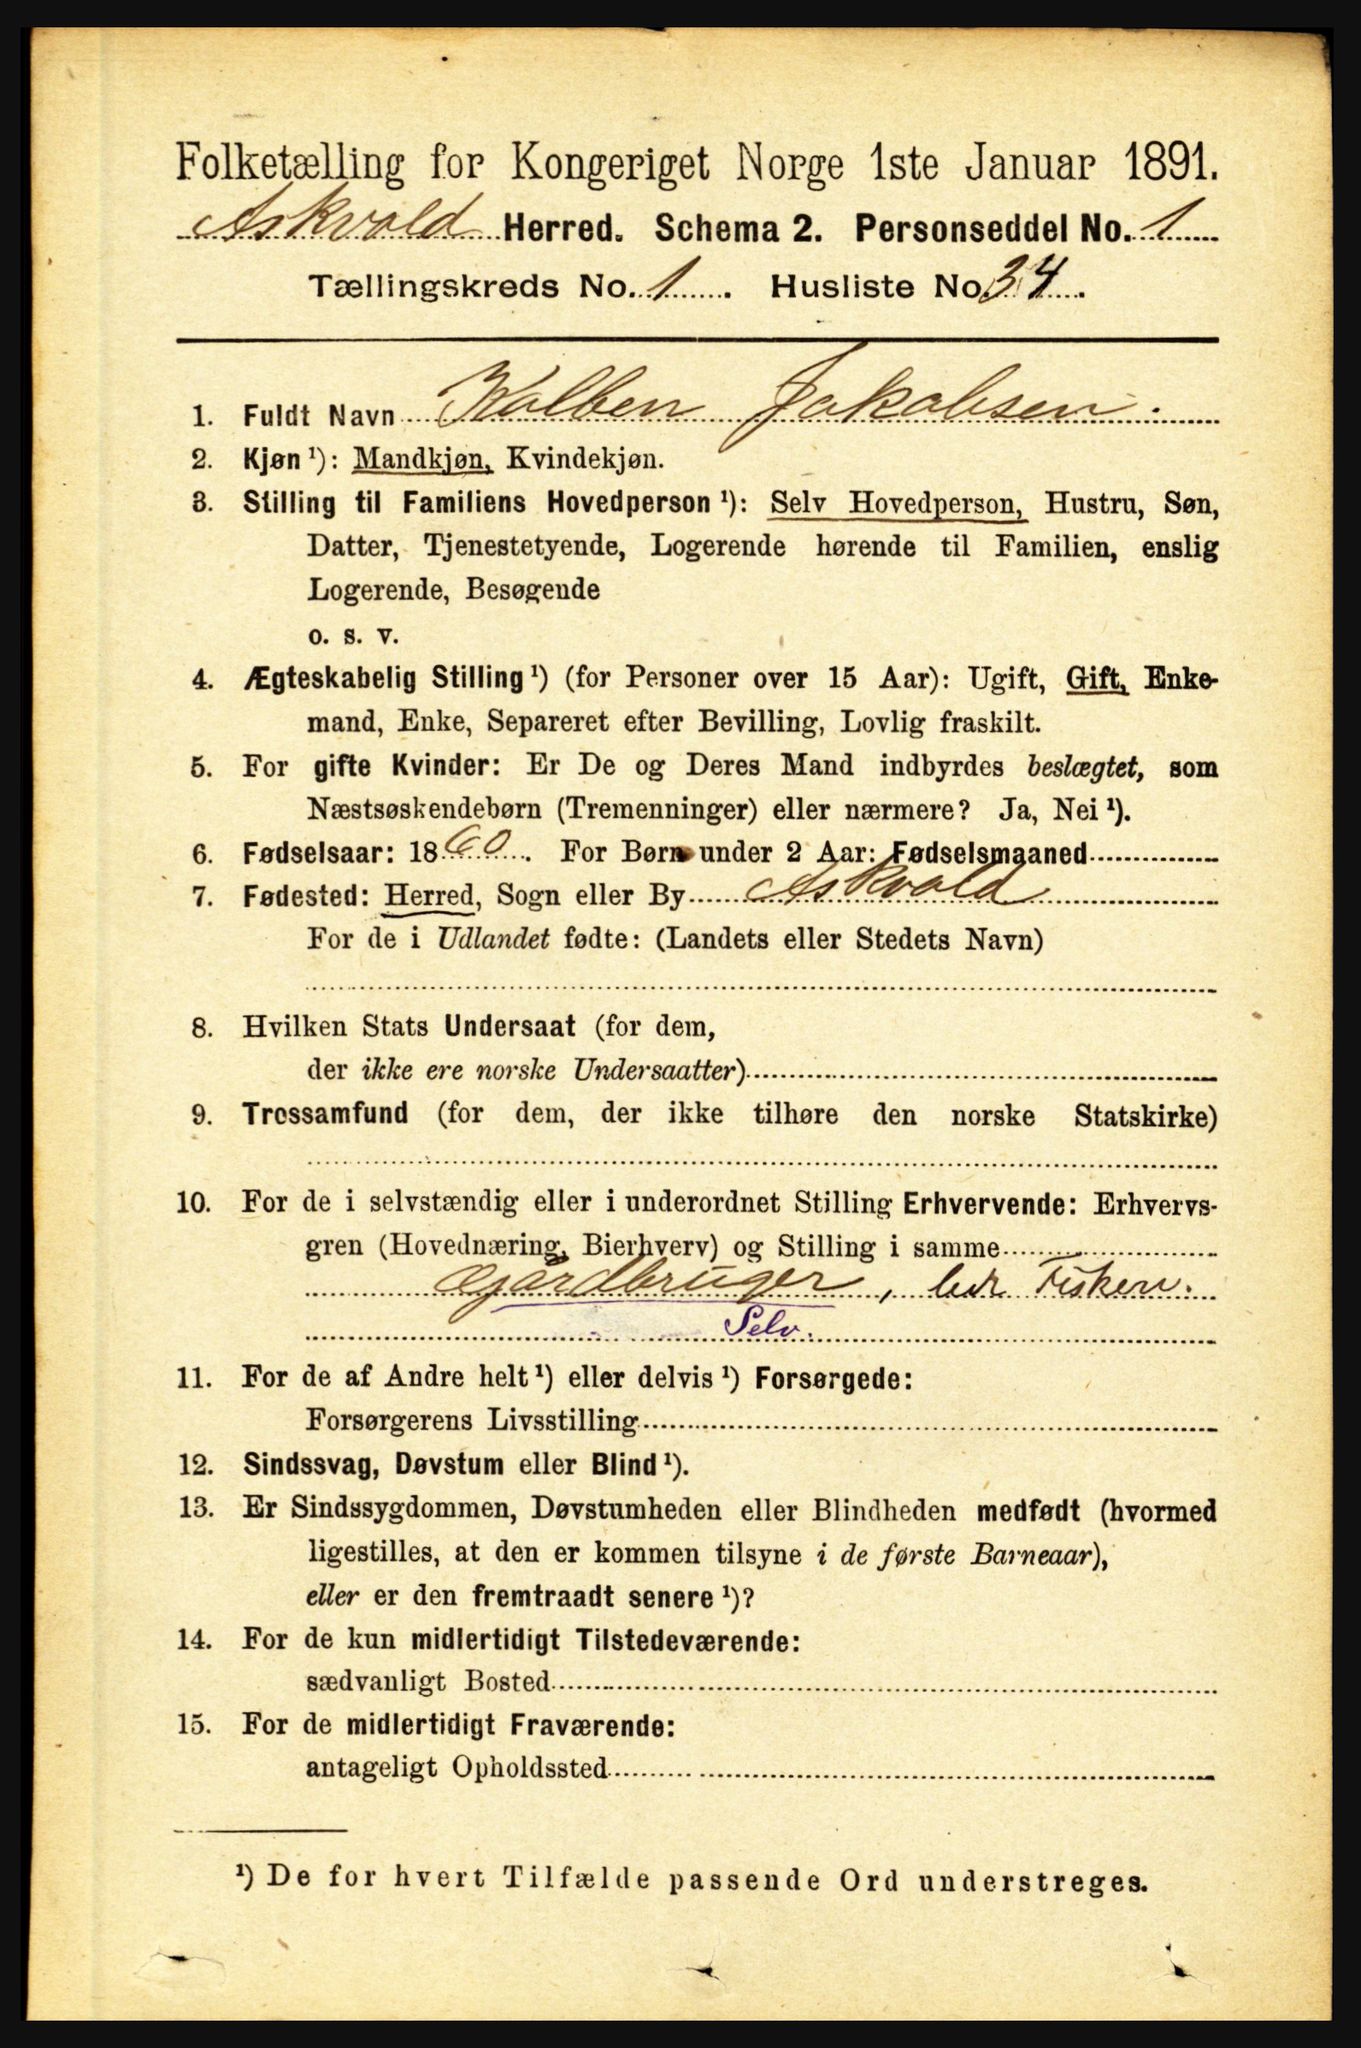 Folketælling for Kongeriget Norge 1ste Januar 1891.
Askvold Herred. Schema 2. Personseddel No. 1
Tællingskreds No. 1. Husliste No 34.
1. Fuldt Navn Kolben Jakobsen.
2. Kjøn ¹): Mandkjøn, Kvindekjøn.
3. Stilling til Familiens Hovedperson ¹): Selv Hovedperson, Hustru, Søn,
Datter, Tjenestetyende, Logerende hørende til Familien, enslig
Logerende, Besøgende
o. s. v.
4. Ægteskabelig Stilling ¹) (for Personer over 15 Aar): Ugift, Gift, Enke-
mand, Enke, Separeret efter Bevilling, Lovlig fraskilt.
5. For gifte Kvinder: Er De og Deres Mand indbyrdes beslægtet, som
Næstsøskendebørn (Tremenninger) eller nærmere? Ja, Nei ¹).
6. Fødselsaar: 1860. For Børn under 2 Aar: Fødselsmaaned
7. Fødested: Herred, Sogn eller By Askvold
For de i Udlandet fødte: (Landets eller Stedets Navn)
8. Hvilken Stats Undersaat (for dem,
der ikke ere norske Undersaatter)
9. Trossamfund (for dem, der ikke tilhøre den norske Statskirke)
10. For de i selvstændig eller i underordnet Stilling Erhvervende: Erhvervs-
gren (Hovednæring, Bierhverv) og Stilling i samme
Gjardbruger, Fisker.
Selv.
11. For de af Andre helt ¹) eller delvis ¹) Forsørgede:
Forsørgerens Livsstilling
12. Sindssvag, Døvstum eller Blind ¹).
13. Er Sindssygdommen, Døvstumheden eller Blindheden medfødt (hvormed
ligestilles, at den er kommen tilsyne i de første Barneaar),
eller er den fremtraadt senere ¹)?
14. For de kun midlertidigt Tilstedeværende:
sædvanligt Bosted
15. For de midlertidigt Fraværende:
antageligt Opholdssted
¹) De for hvert Tilfælde passende Ord understreges.